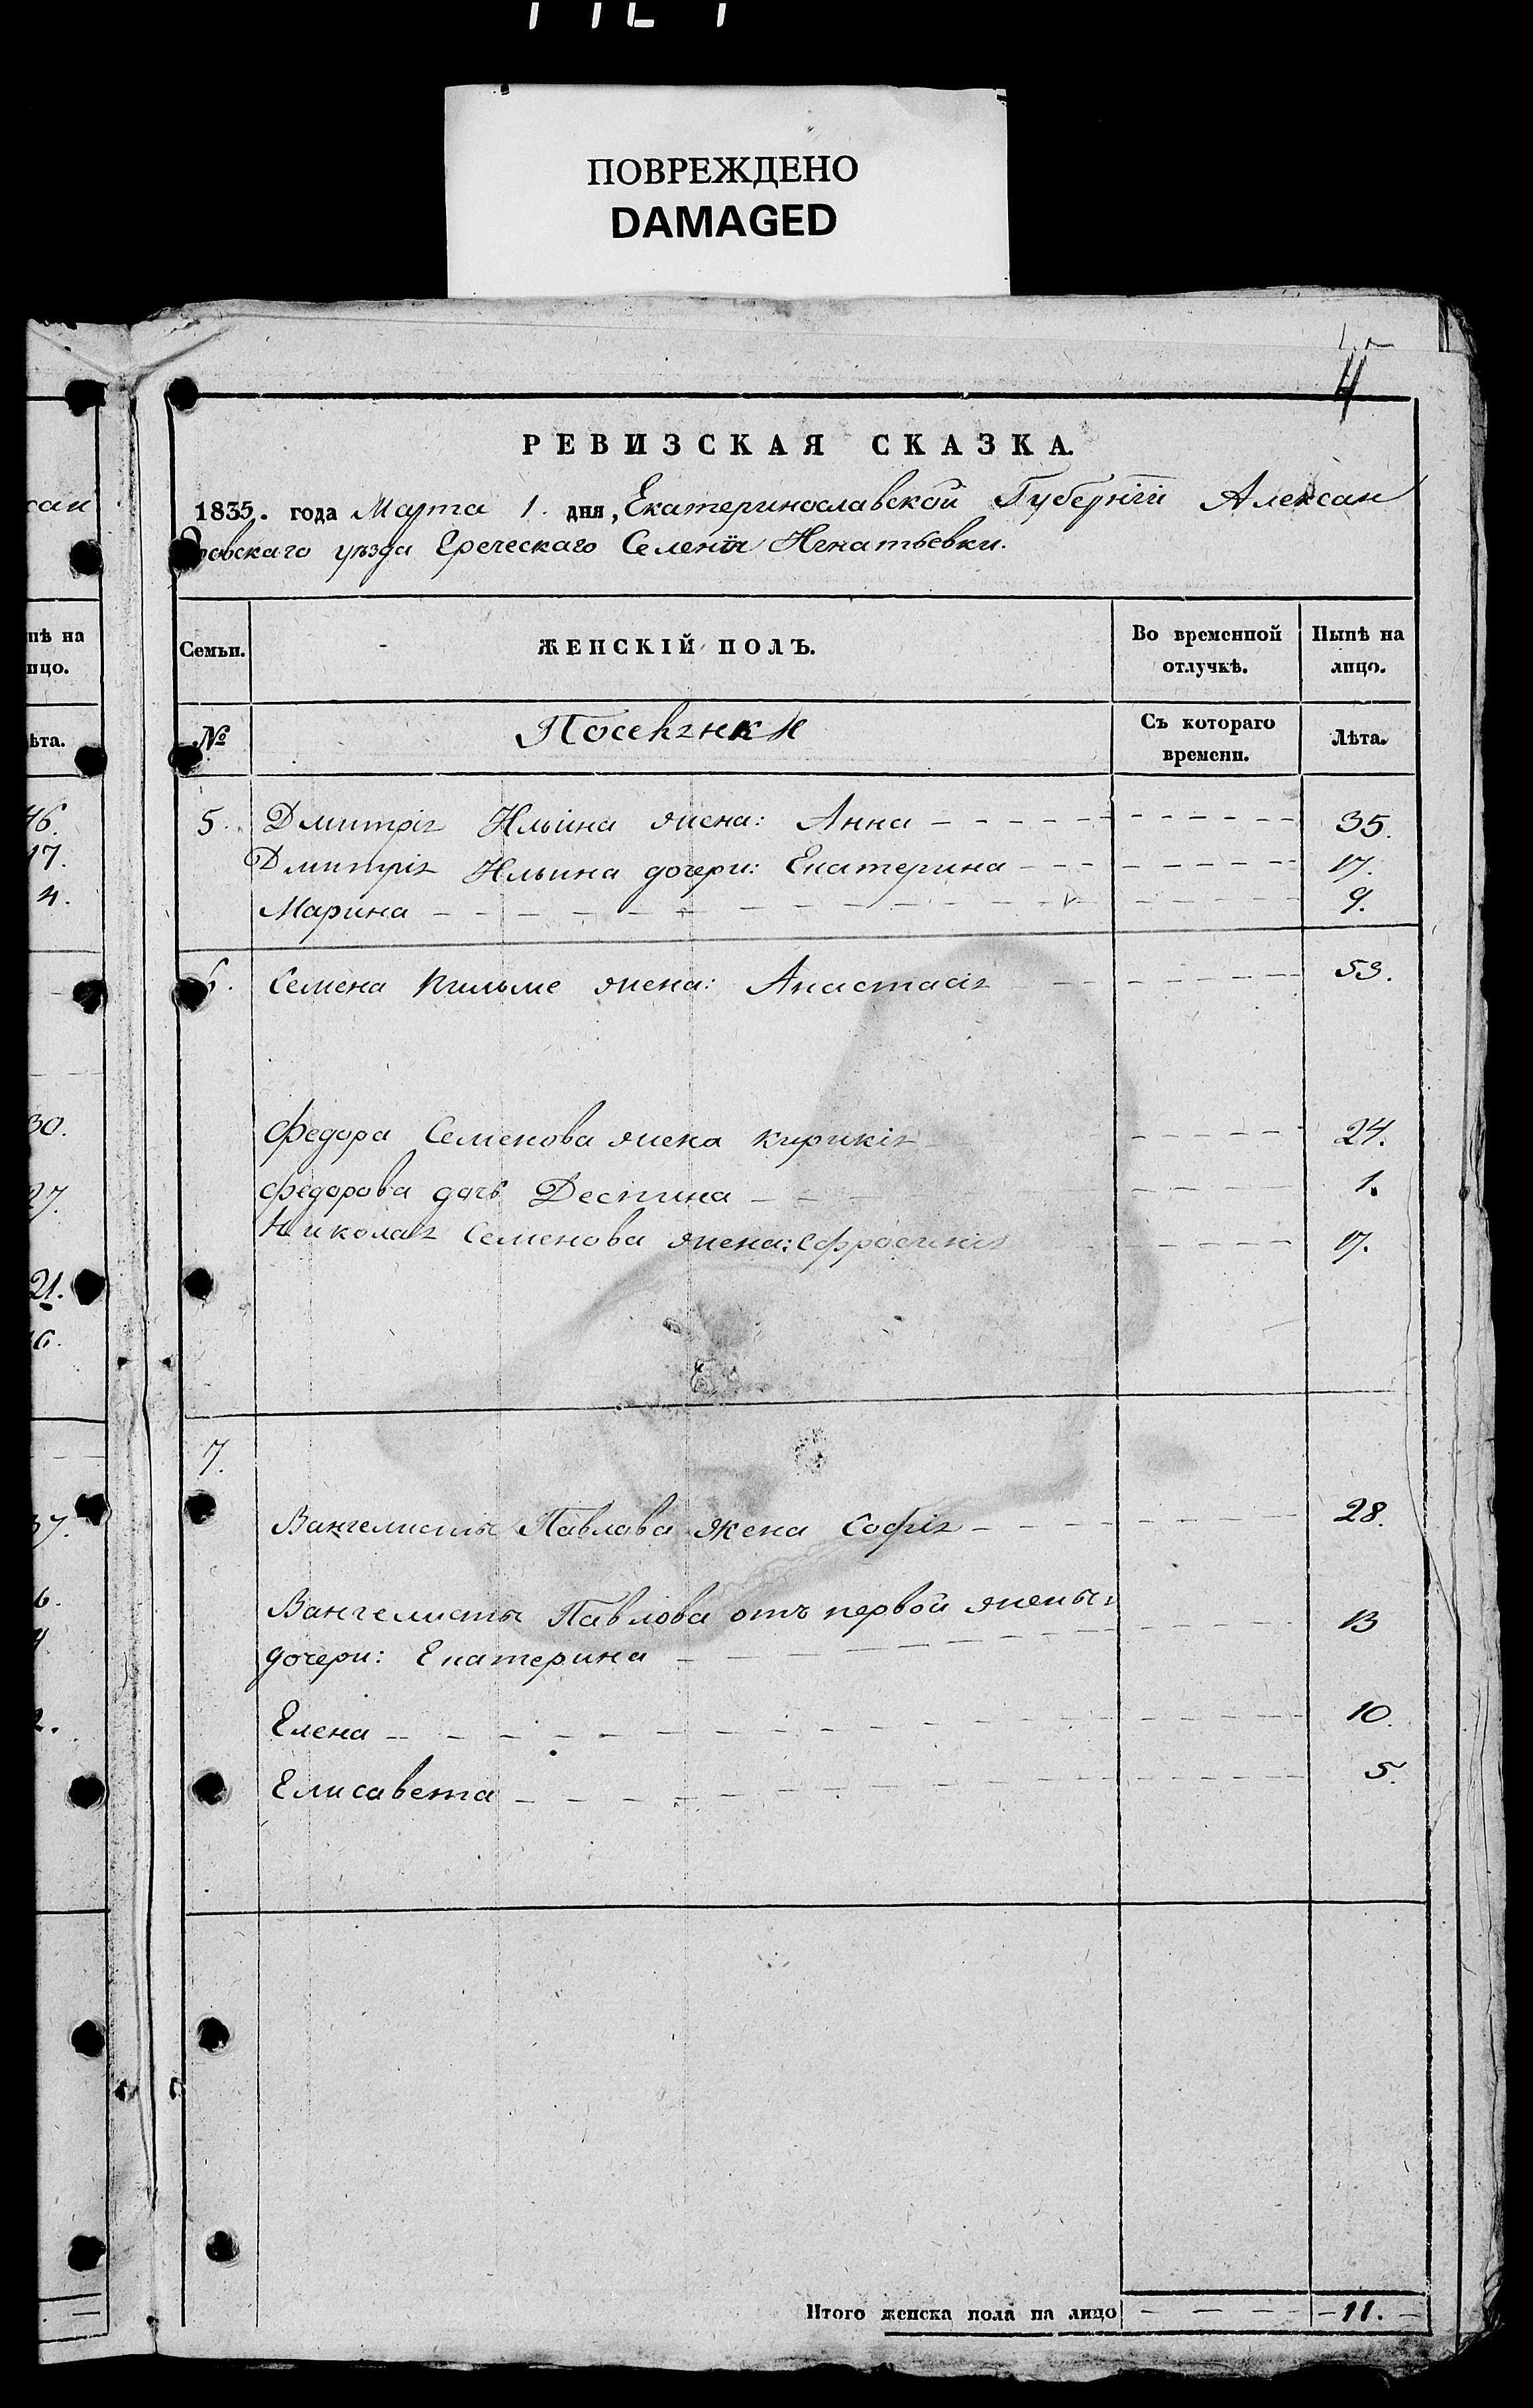 ПОВРЕЖДЕНО
DAMAGED
4
РЕВИЗСКАЯ СКАЗКА.
1835. года Марта 1. дня, Екатеринославской Губерніи Алексан
дровскаго уѣзда Греческаго Селенія Игнатьевки.
Семьи. ЖЕНСКІЙ ПОЛЪ. Во временной отлучкѣ. Нынѣ на лицо.
№ Поселянки Съ котораго времени. Лѣта.
5. Дмитрія Ильина жена: Анна 35.
Дмитрія Ильина дочери: Екатерина 17.
Марина 9.
6. Семена жена: Анастасія 53.
Федора Семенова жена Кирикія 24.
Федорова дочь Деспина 1.
Николая Семенова жена: Ефросинія 17.
7.
Вангелиста Павлова жена Софія 28.
Вангелиста Павлова отъ первой жены
дочери: Екатерина 13
Елена 10.
Елисавета 5.
Итого женска пола на лицо 11.